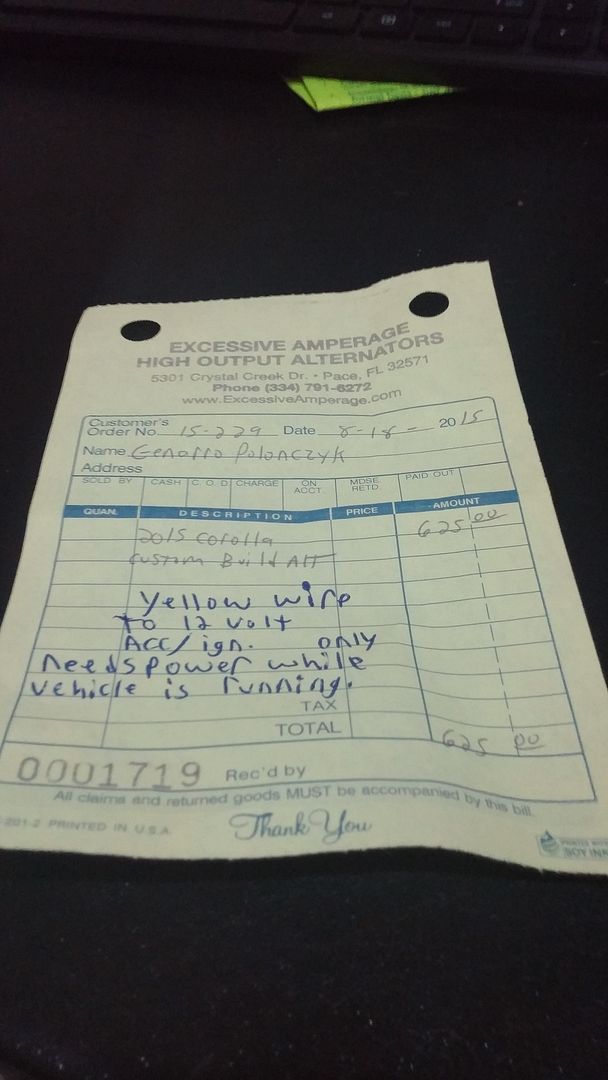 EXCESSIVE AMPERAGE
HIGH OUTPUT ALTERNATORS
5301 Crystal Creek Dr. • Pace, FL 32571
Phone (334) 791-6272
www.ExcessiveAmperage.com
Customer's
Order No. 15-229 Date 8-18- 2015
Name Genaro Polonczyk
Address
SOLD BY CASH C. O. D. CHARGE ON ACCT. MDSE. RETD. PAID OUT
QUAN. DESCRIPTION PRICE AMOUNT
2015 Corolla 625 00
Custom Build Alt
Yellow wire
to 12 volt
ACC/ ign. only
needs power while
vehicle is running.
TAX
TOTAL 625 00
0001719 Rec'd by
All claims and returned goods MUST be accompanied by this bill.
PRINTED IN U.S.A.
Thank You
SOY INK